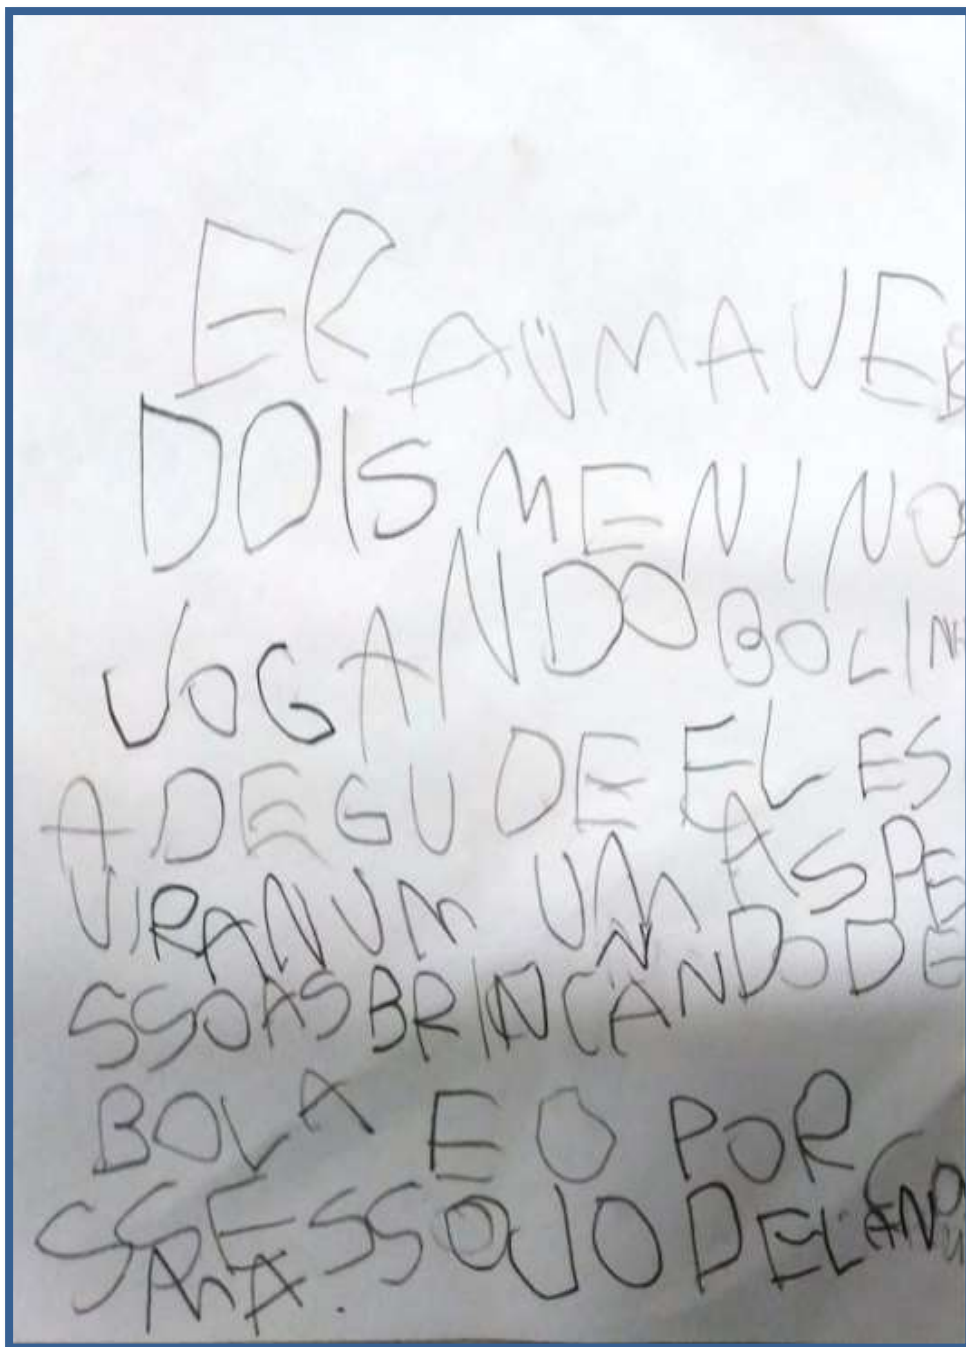 ERA UMA VE
DOIS MENINOS
JOGANDO BOLIN
A DE GUDE ELES
VIRAN UM UMAS PE
SSOAS BRINCANDO DE
BOLA E O POR